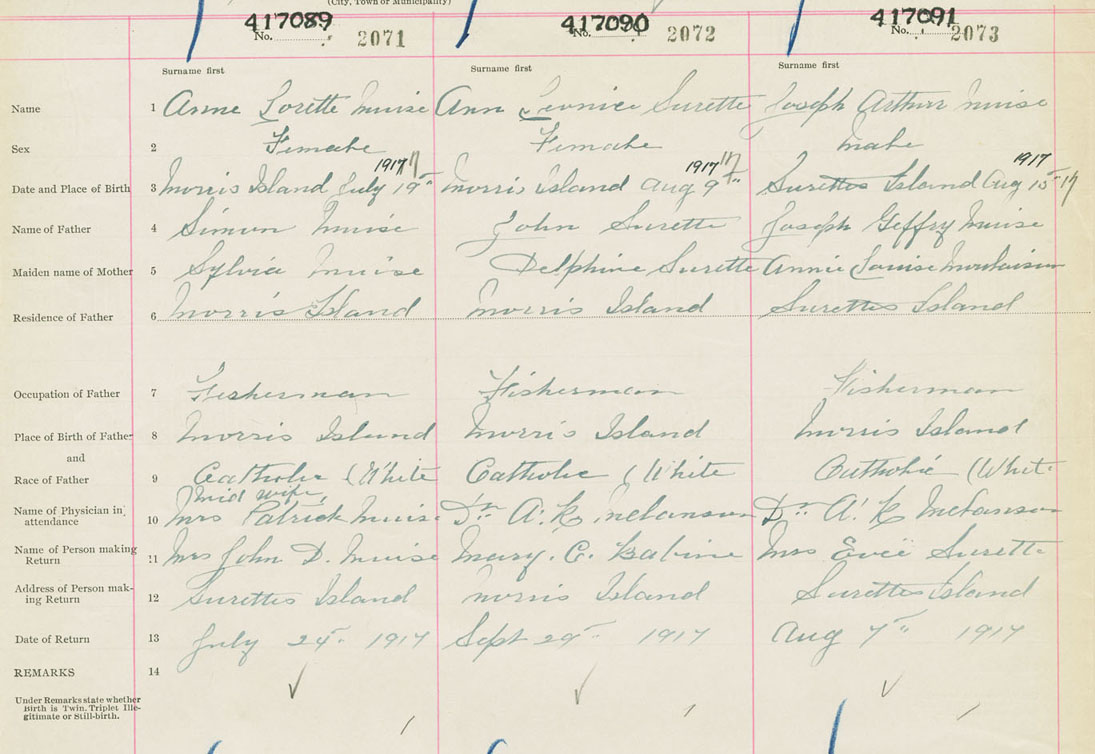 (City, Town or Municipality)
417089 417090 417091
No. 2071 No. 2072 No. 2073
Surname first Surname first Surname first
Name 1 Anne Lorette Muise Ann Leonice Surette Joseph Arthur Muise
Sex 2 Female Female Male
1917 17 1917 17 1917
Date and Place of Birth 3 Morris Island July 19th Morris Island Aug 9th Surettes Island Aug 15th 17
Name of Father 4 Simon Muise John Surette Joseph Geffry Muise
Maiden name of Mother 5 Sylvia Muise Delphine Surette Annie Louise
Residence of Father 6 Morris Island Morris Island Surettes Island
Occupation of Father 7 Fisherman Fisherman Fisherman
Place of Birth of Father 8 Morris Island Morris Island Morris Island
and
Race of Father 9 Catholic (White Catholic (White Catholic (Whit
Mid wife,
Name of Physician in
attendance 10 Mrs Patrick Muise Dr. A. K Melanson Dr. A. K Melanson
Name of Person making
Return 11 Mrs John D. Muise Mary. C. Babine Mrs Evéé Surette
Address of Person mak-
ing Return 12 Surettes Island Morris Island Surettes Island
Date of Return 13 July 24th 1917 Sept 29th 1917 Aug 7th 1917
REMARKS 14
Under Remarks state whether
Birth is Twin. Triplet Ille-
gitimate or Still-birth.